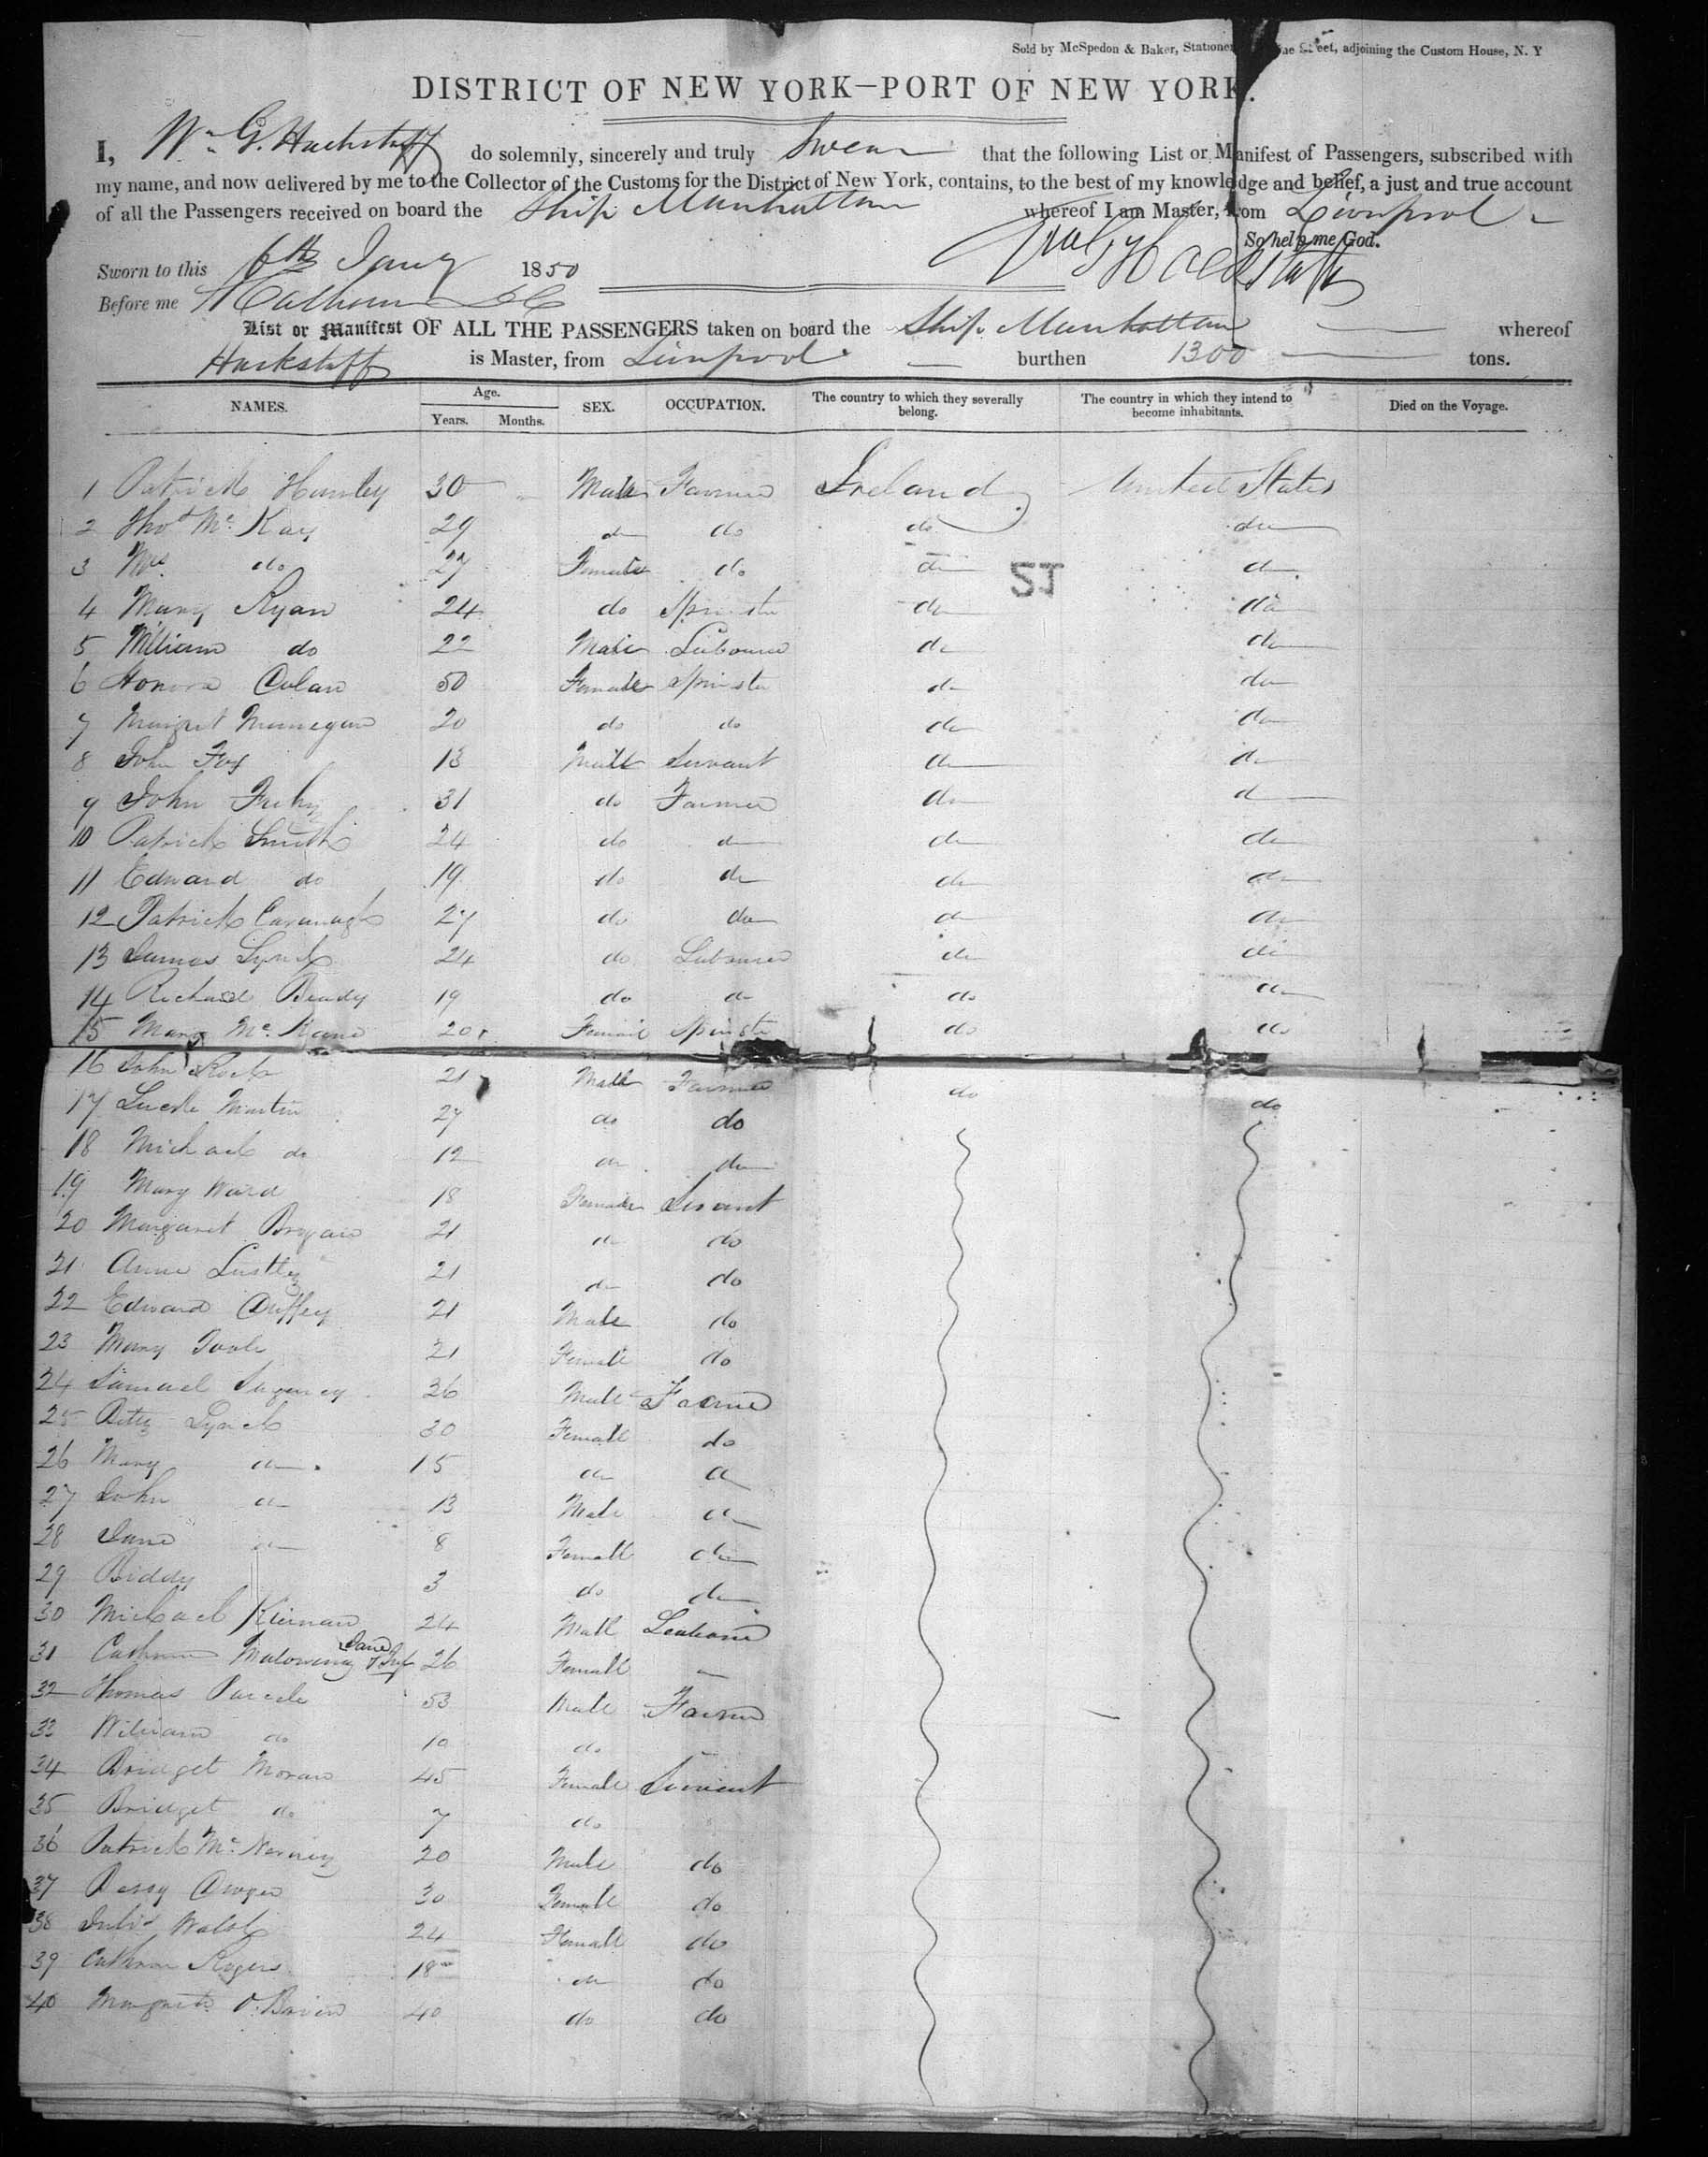 Sold by McSpedon & Baker, Stationers Street, adjoining the Custom House, N. Y
DISTRICT OF NEW YORK—PORT OF NEW YORK.
I, Wm G. Hackstaff do solemnly, sincerely and truly Swear that the following List or Manifest of Passengers, subscribed with
my name, and now delivered by me to the Collector of the Customs for the District of New York, contains, to the best of my knowledge and belief, a just and true account
of all the Passengers received on board the Ship Manhattan whereof I am Master, from Liverpool
So help me God.
Sworn to this 6th Jany 1850 Wm G Hackstaff
Before me Calhoun
List or Manifest OF ALL THE PASSENGERS taken on board the Ship Manhattan whereof
Hackstaff is Master, from Liverpool burthen 1300 tons.
NAMES. Age. Years. Months. SEX. OCCUPATION. The country to which they severally belong. The country in which they intend to become inhabitants. Died on the Voyage.
1 Patrick Hanley 30 Male Farmer Ireland United States
2 Thos Mc Kay 29 do do do do
3 Mrs do 27 Female do do do
21
4 Mary Ryan 24 do Spinster do do
5 William do 22 Male Labourer do do
6 Honora Colan 50 Female Spinster do do
7 Margret 20 do do do do
8 John Fox 13 Male Servant do do
9 John Fahy 31 do Farmer do do
10 Patrick Smith 24 do do do do
11 Edward do 19 do do do do
12 Patrick Cavanagh 27 do do do do
13 James Lynch 24 do Labourer do do
14 Richard Brady 19 do do do do
15 Mary Mc Kane 20 Female Spinster do do
16 John Rock 21 Male Farmer do do
17 Martin 27 do do
18 Michael do 12 do do
19 Mary Ward 18 Female Servant
20 Margaret Bryan 21 do do
21 Anne 21 do do
22 Edward Duffey 21 Male do
23 Mary Toole 21 Female do
24 Samuel 26 Male Farmer
25 Betty Lynch 30 Female do
26 Mary do 15 do do
27 John do 13 Male do
28 Jane do 8 Female do
29 Biddy 3 do do
30 Michael Kiernan 24 Male Labourer
31 Cathrine & Inf 26 Female
32 Thomas 53 Male Farmer
33 William do 10 do
34 Bridget Moran 45 Female Servant
35 Bridget do 7 do
36 Patrick Mc Nerney 20 Male do
37 Dwyer 30 Female do
38 Julia Walsh 24 Female do
39 Cathrine Rogers 18 do do
40 Margrete O'Brien 40 do do